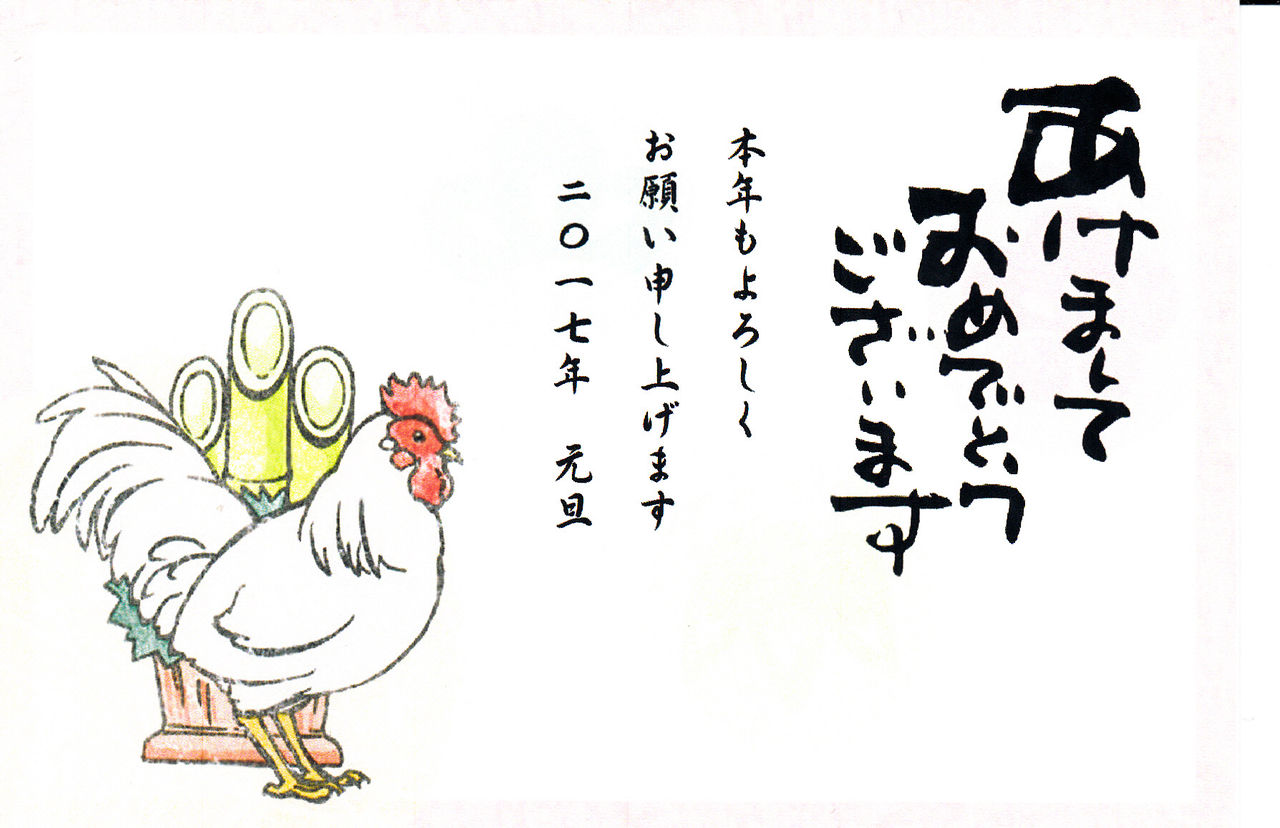 あけまして
おめでとう
ございます
本年もよろしく
お願い申し上げます
二〇一七年 元旦